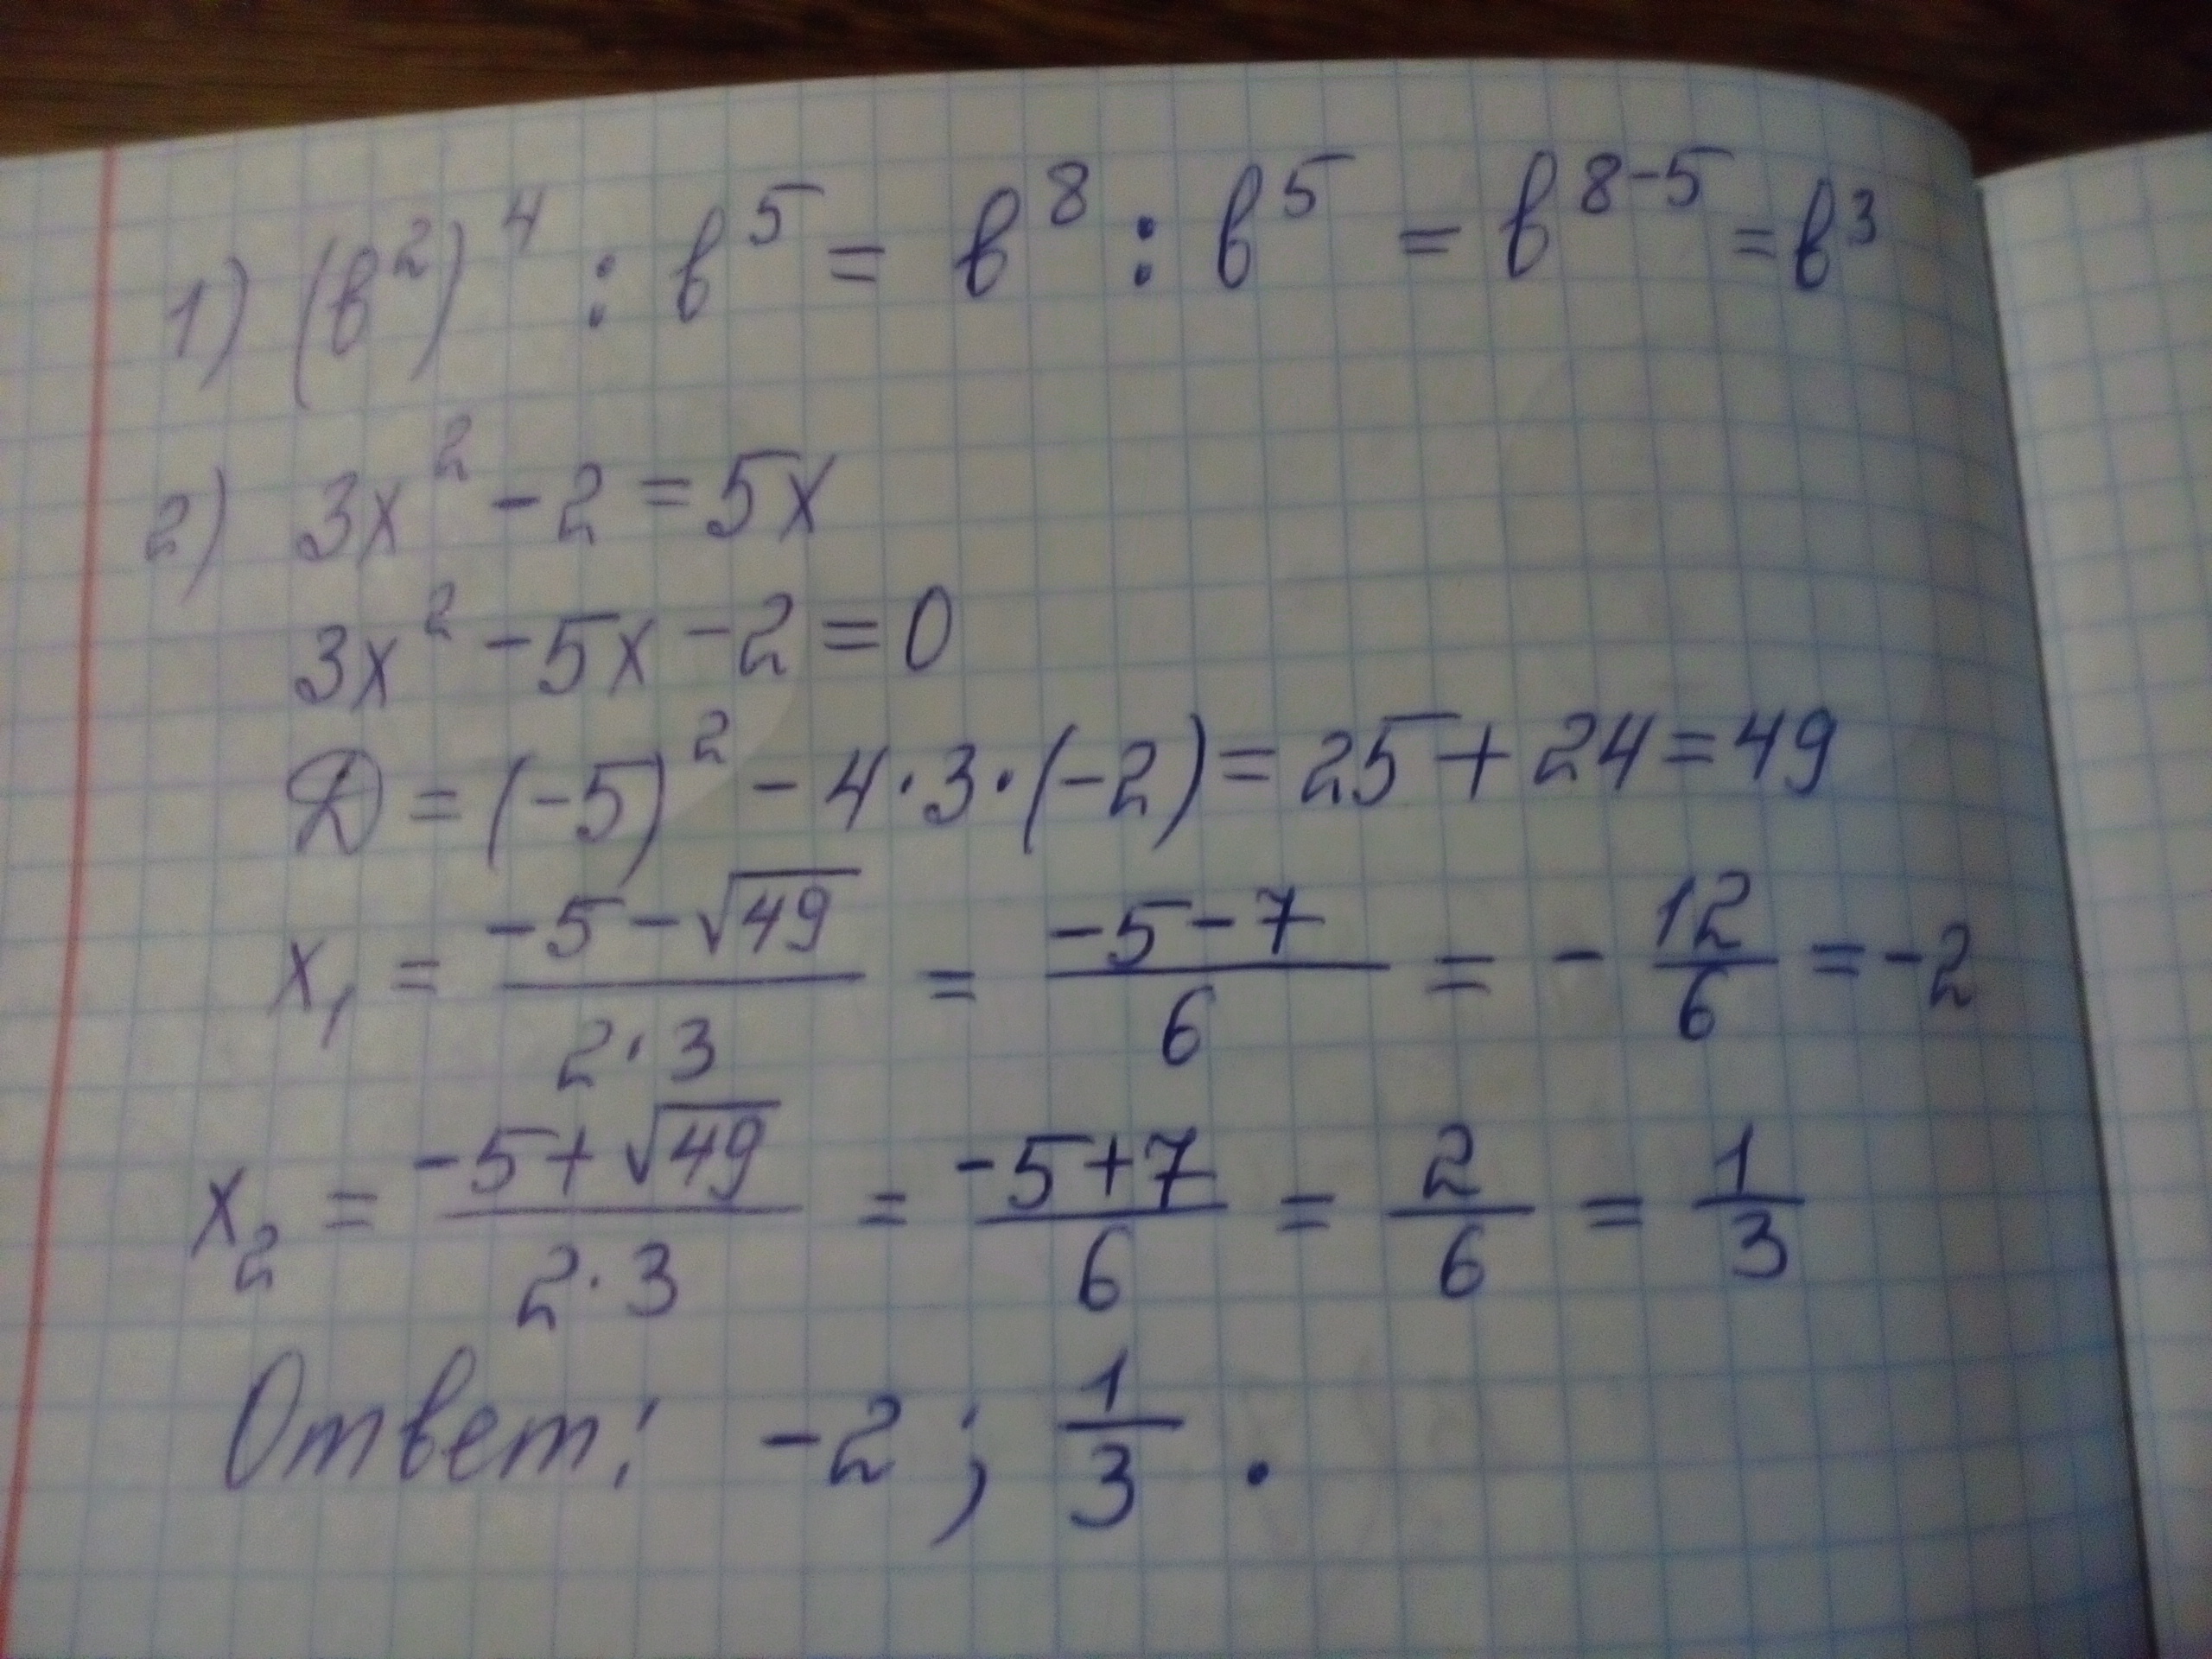 1) (b²)⁴ : b⁵ = b⁸ : b⁵ = b⁸⁻⁵ = b³
2) 3x² - 2 = 5x
3x² - 5x - 2 = 0
D = (-5)² - 4·3·(-2) = 25 + 24 = 49
x₁ = (-5-√49)/(2·3) = (-5-7)/6 = -12/6 = -2
x₂ = (-5+√49)/(2·3) = (-5+7)/6 = 2/6 = 1/3
Ответ: -2; 1/3.